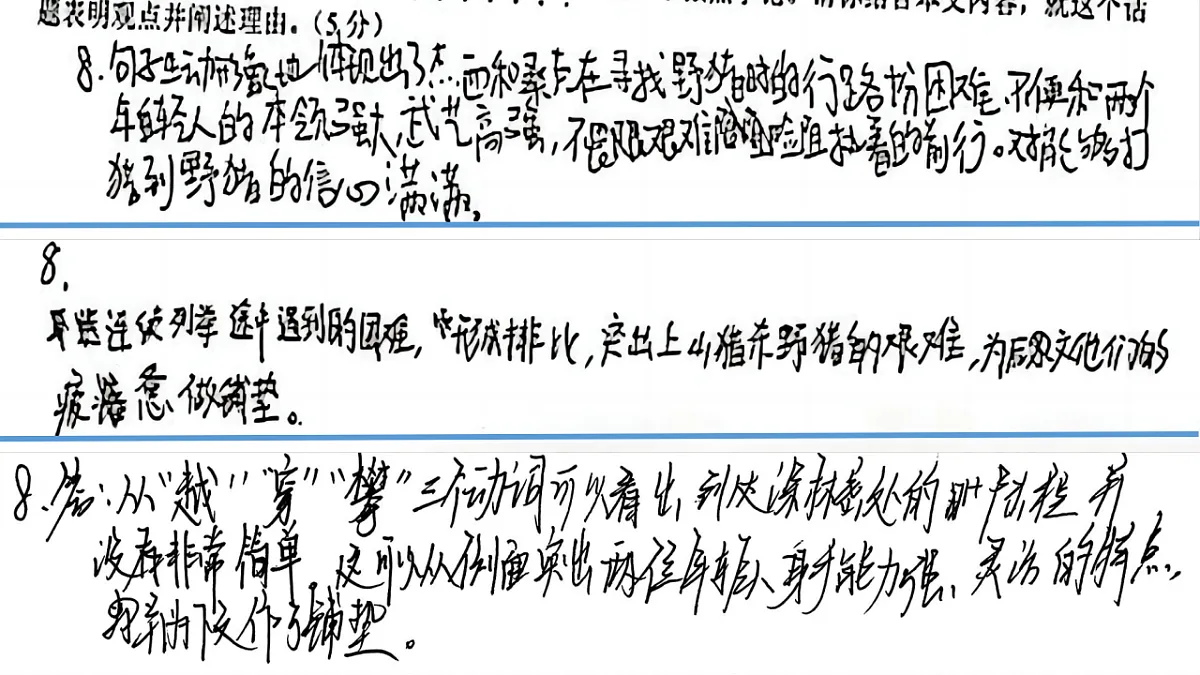 题表明观点并阐述理由。(5分)
8. 句子生动形象地体现出了杰西和桑点在寻找野猪时的行路的困难,不便和两个
年轻人的本领强大,武艺高强,不畏艰难险阻执着的前行。对能够打
猎到野猪的信心满满。
8.
连续列举途中遇到的困难,形成排比,突出上山猎杀野猪的艰难,为后文他们的
疲惫做铺垫。
8. 答:从“越”“穿”“攀”三个动词可以看出,到达深林深处的路程并
没有非常简单,这可以从侧面突出两位年轻人身手能力强、灵活的特点,
为下文作了铺垫。